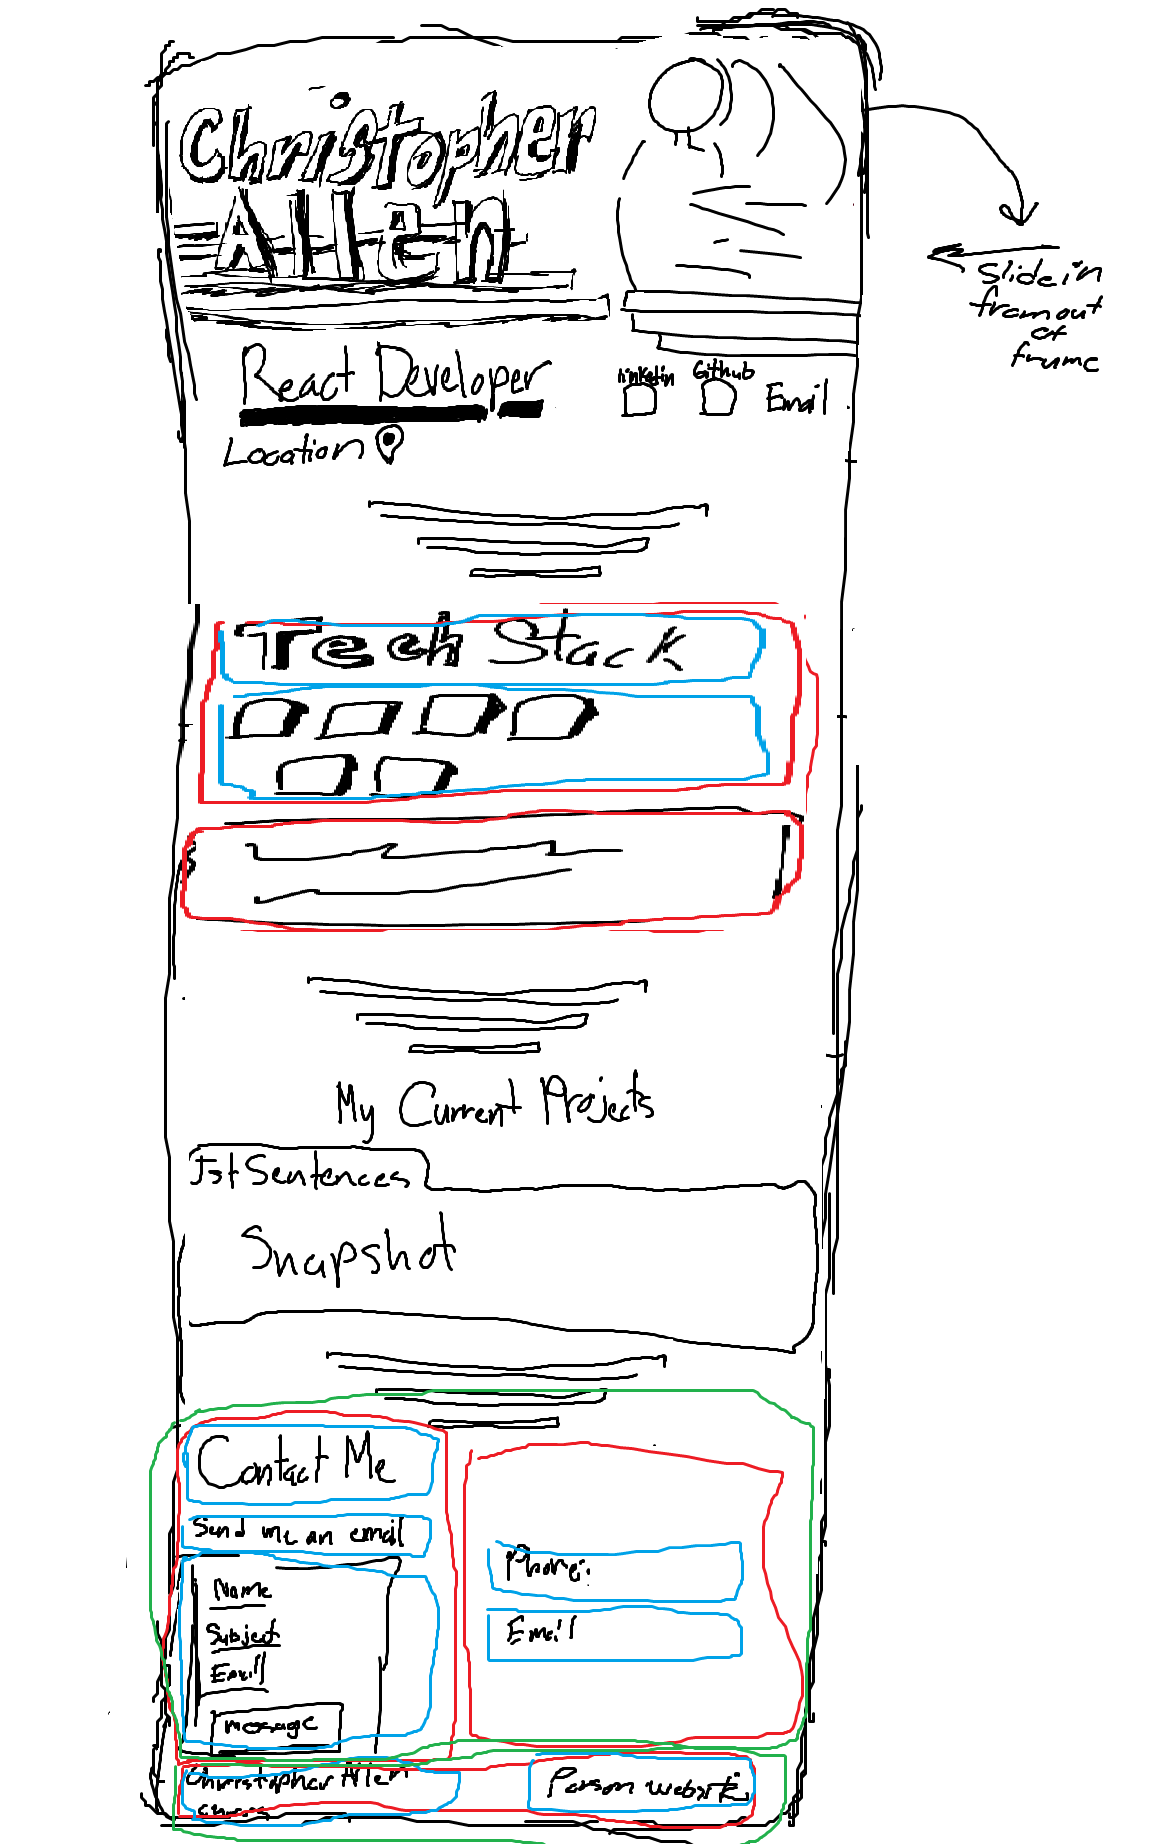 Christopher
Allen
Slide in
from out
of
frame
React Developer
linkedin
Github
Email
Location
Tech Stack
My Current Projects
Sentences
Snapshot
Contact Me
Send me an email
Name
Subject
Email
message
Phone:
Email
Christopher Allen
Person website